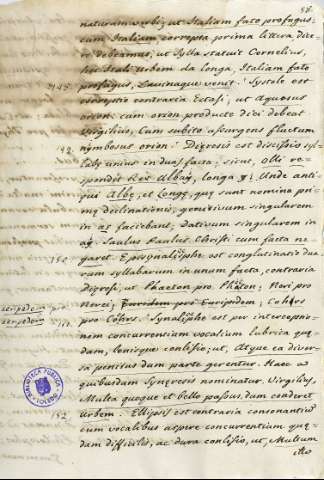 58.
naturam verbi; ut Italiam fato profugus:
cum Italiam correpta prima littera dice-
re debeamus, ut Sylla statuit Cornelius,
sive Itali urbem da longa, Italiam fato
profugus, Lavinaque venit. Systole est
correptio contraria Ectasi, ut aquosus
orion: cum orion producte dici debeat
Virgilius, Cum subito assurgens fluctum
nymbosus orion: Dieresis est discissio syl-
labe unius in duas facta: sicut, olli re-
spondit Rex Albaÿ, longa ÿ: Unde anti-
qui Albę, et Longę, quę sunt nomina pri-
mę declinationis, genitivum singularem
in as faciebant; dativum singularem in
aÿ. Saulus Paulus Christi cum facta ne-
garet. Episynaliphe est conglutinatio dua-
rum syllabarum in unum facta, contraria
Dieresi, ut Phaeton pro Phäeton; Neri pro
Nerei, Euridem pro Euripedem, Cohors
aeripedem pro
aeripedem
pro Cohors. Synaliphe est per interceptio-
nem concurrentium vocalium lubrica quę-
dam, lenisque conlisio; ut, Atque ea diver-
sa penitus dum parte geruntur. Haec a
quibusdam Syneresis nominatur. Virgilius,
Multa quoque et bello passus, dum conderet
urbem. Ellipsis est contraria consonantium
cum vocalibus aspere concurrentium quę-
dam difficilis, ac dura conlisio, ut Multum
ille
152
152
BIBLIOTECA PUBLICA
TOLEDO